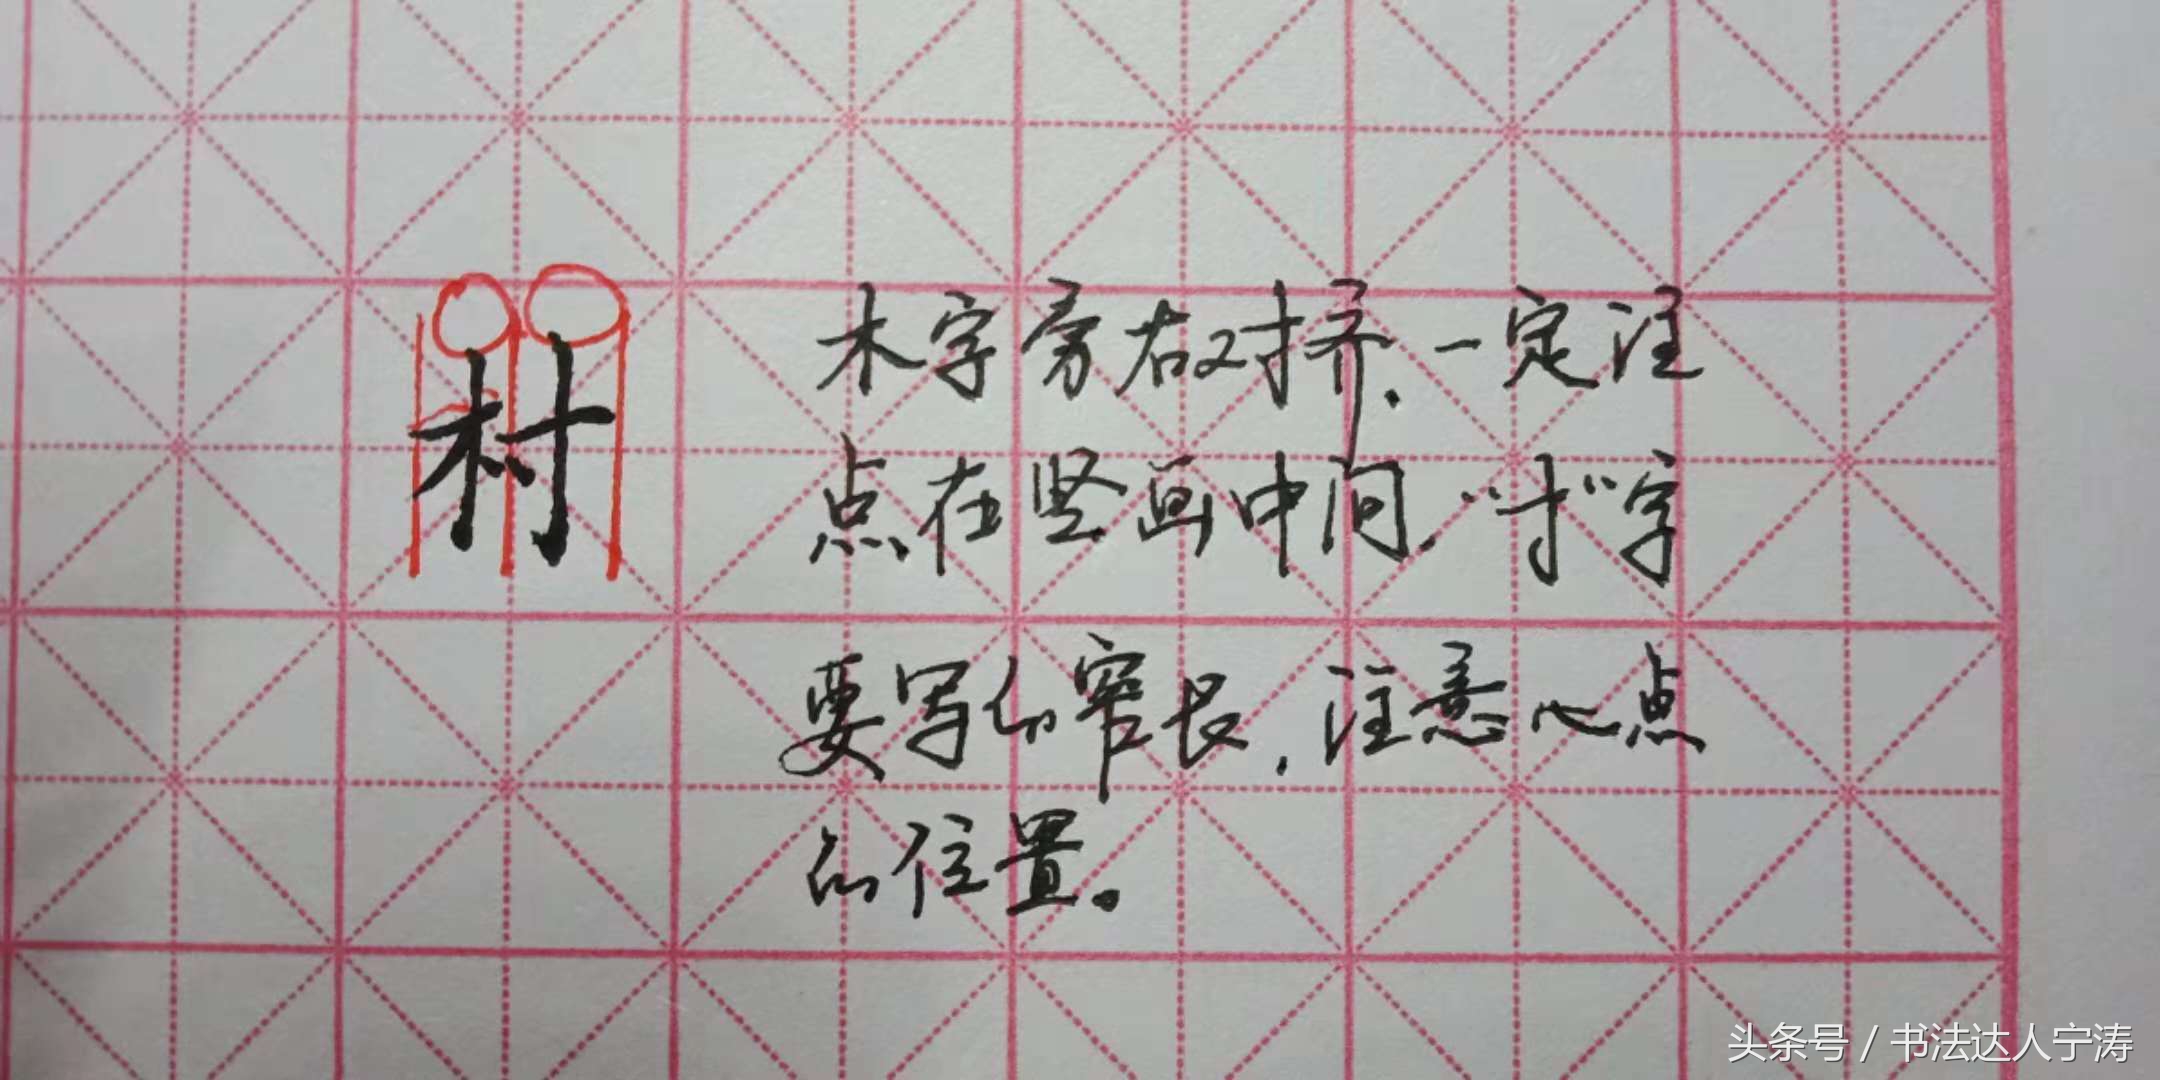 村
木字旁右对齐,一定注
点在竖画中间,“寸”字
要写的窄长,注意心点
的位置。
头条号 / 书法达人宁涛